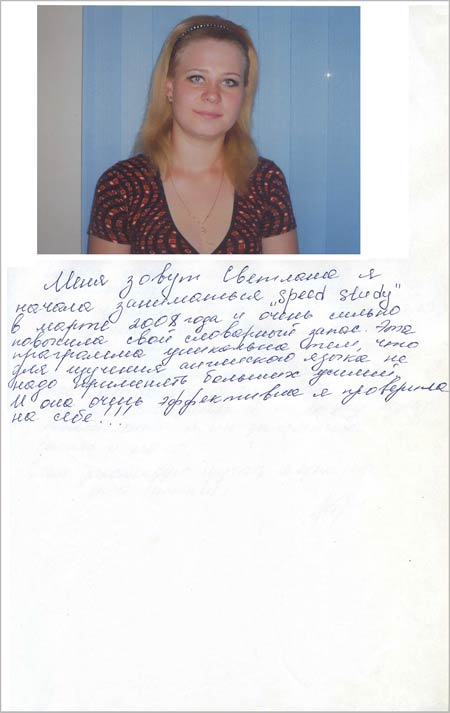 Меня зовут Светлана я
начала заниматься „Speed Study"
в марте 2008 года и очень сильно
повысила свой словарный запас. Эта
программа уникальна тем, что
для изучения английского языка не
надо применять больших усилий.
И она очень эффективна я проверила
на себе!!!